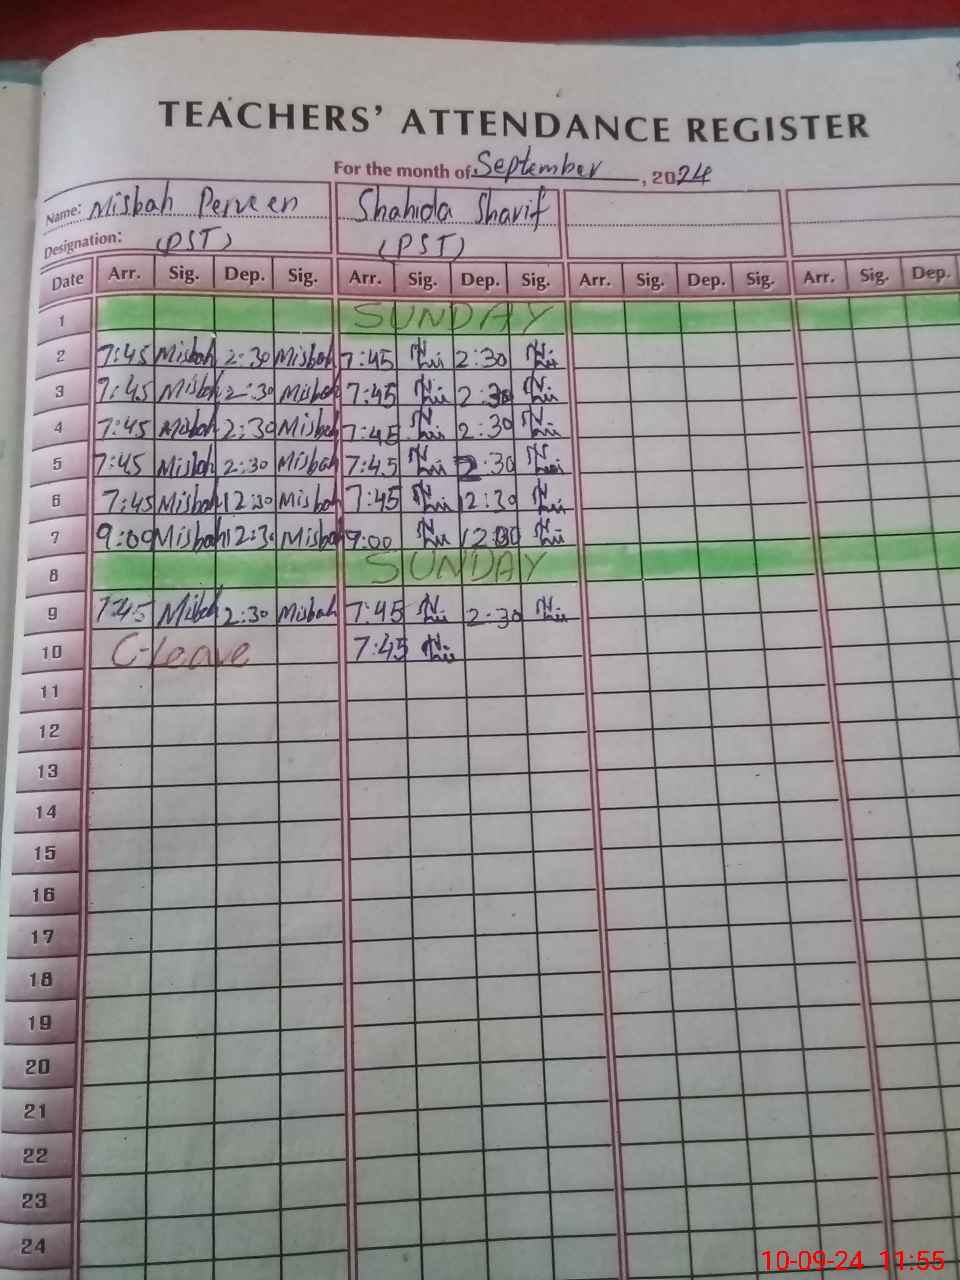 TEACHERS' ATTENDANCE REGISTER
For the month of September, 2024
Name: Misbah Perveen Shahida Sharif
Designation: (PST) (PST)
Date Arr. Sig. Dep. Sig. Arr. Sig. Dep. Sig. Arr. Sig. Dep. Sig. Arr. Sig. Dep.
1 SUNDAY
2 7:45 Misbah 2:30 Misbah 7:45 2:30
3 7:45 Misbah 2:30 Misbah 7:45 2:30
4 7:45 Misbah 2:30 Misbah 7:45 2:30
5 7:45 Misbah 2:30 Misbah 7:45 2:30
6 7:45 Misbah 12:30 Misbah 7:45 12:30
7 9:00 Misbah 12:3 Misbah 9:00 12:00
8 SUNDAY
9 7:45 Misbah 2:30 Misbah 7:45 2:30
10 C-Leave 7:45
11
12
13
14
15
16
17
18
19
20
21
22
23
24
10-09-24 11:55